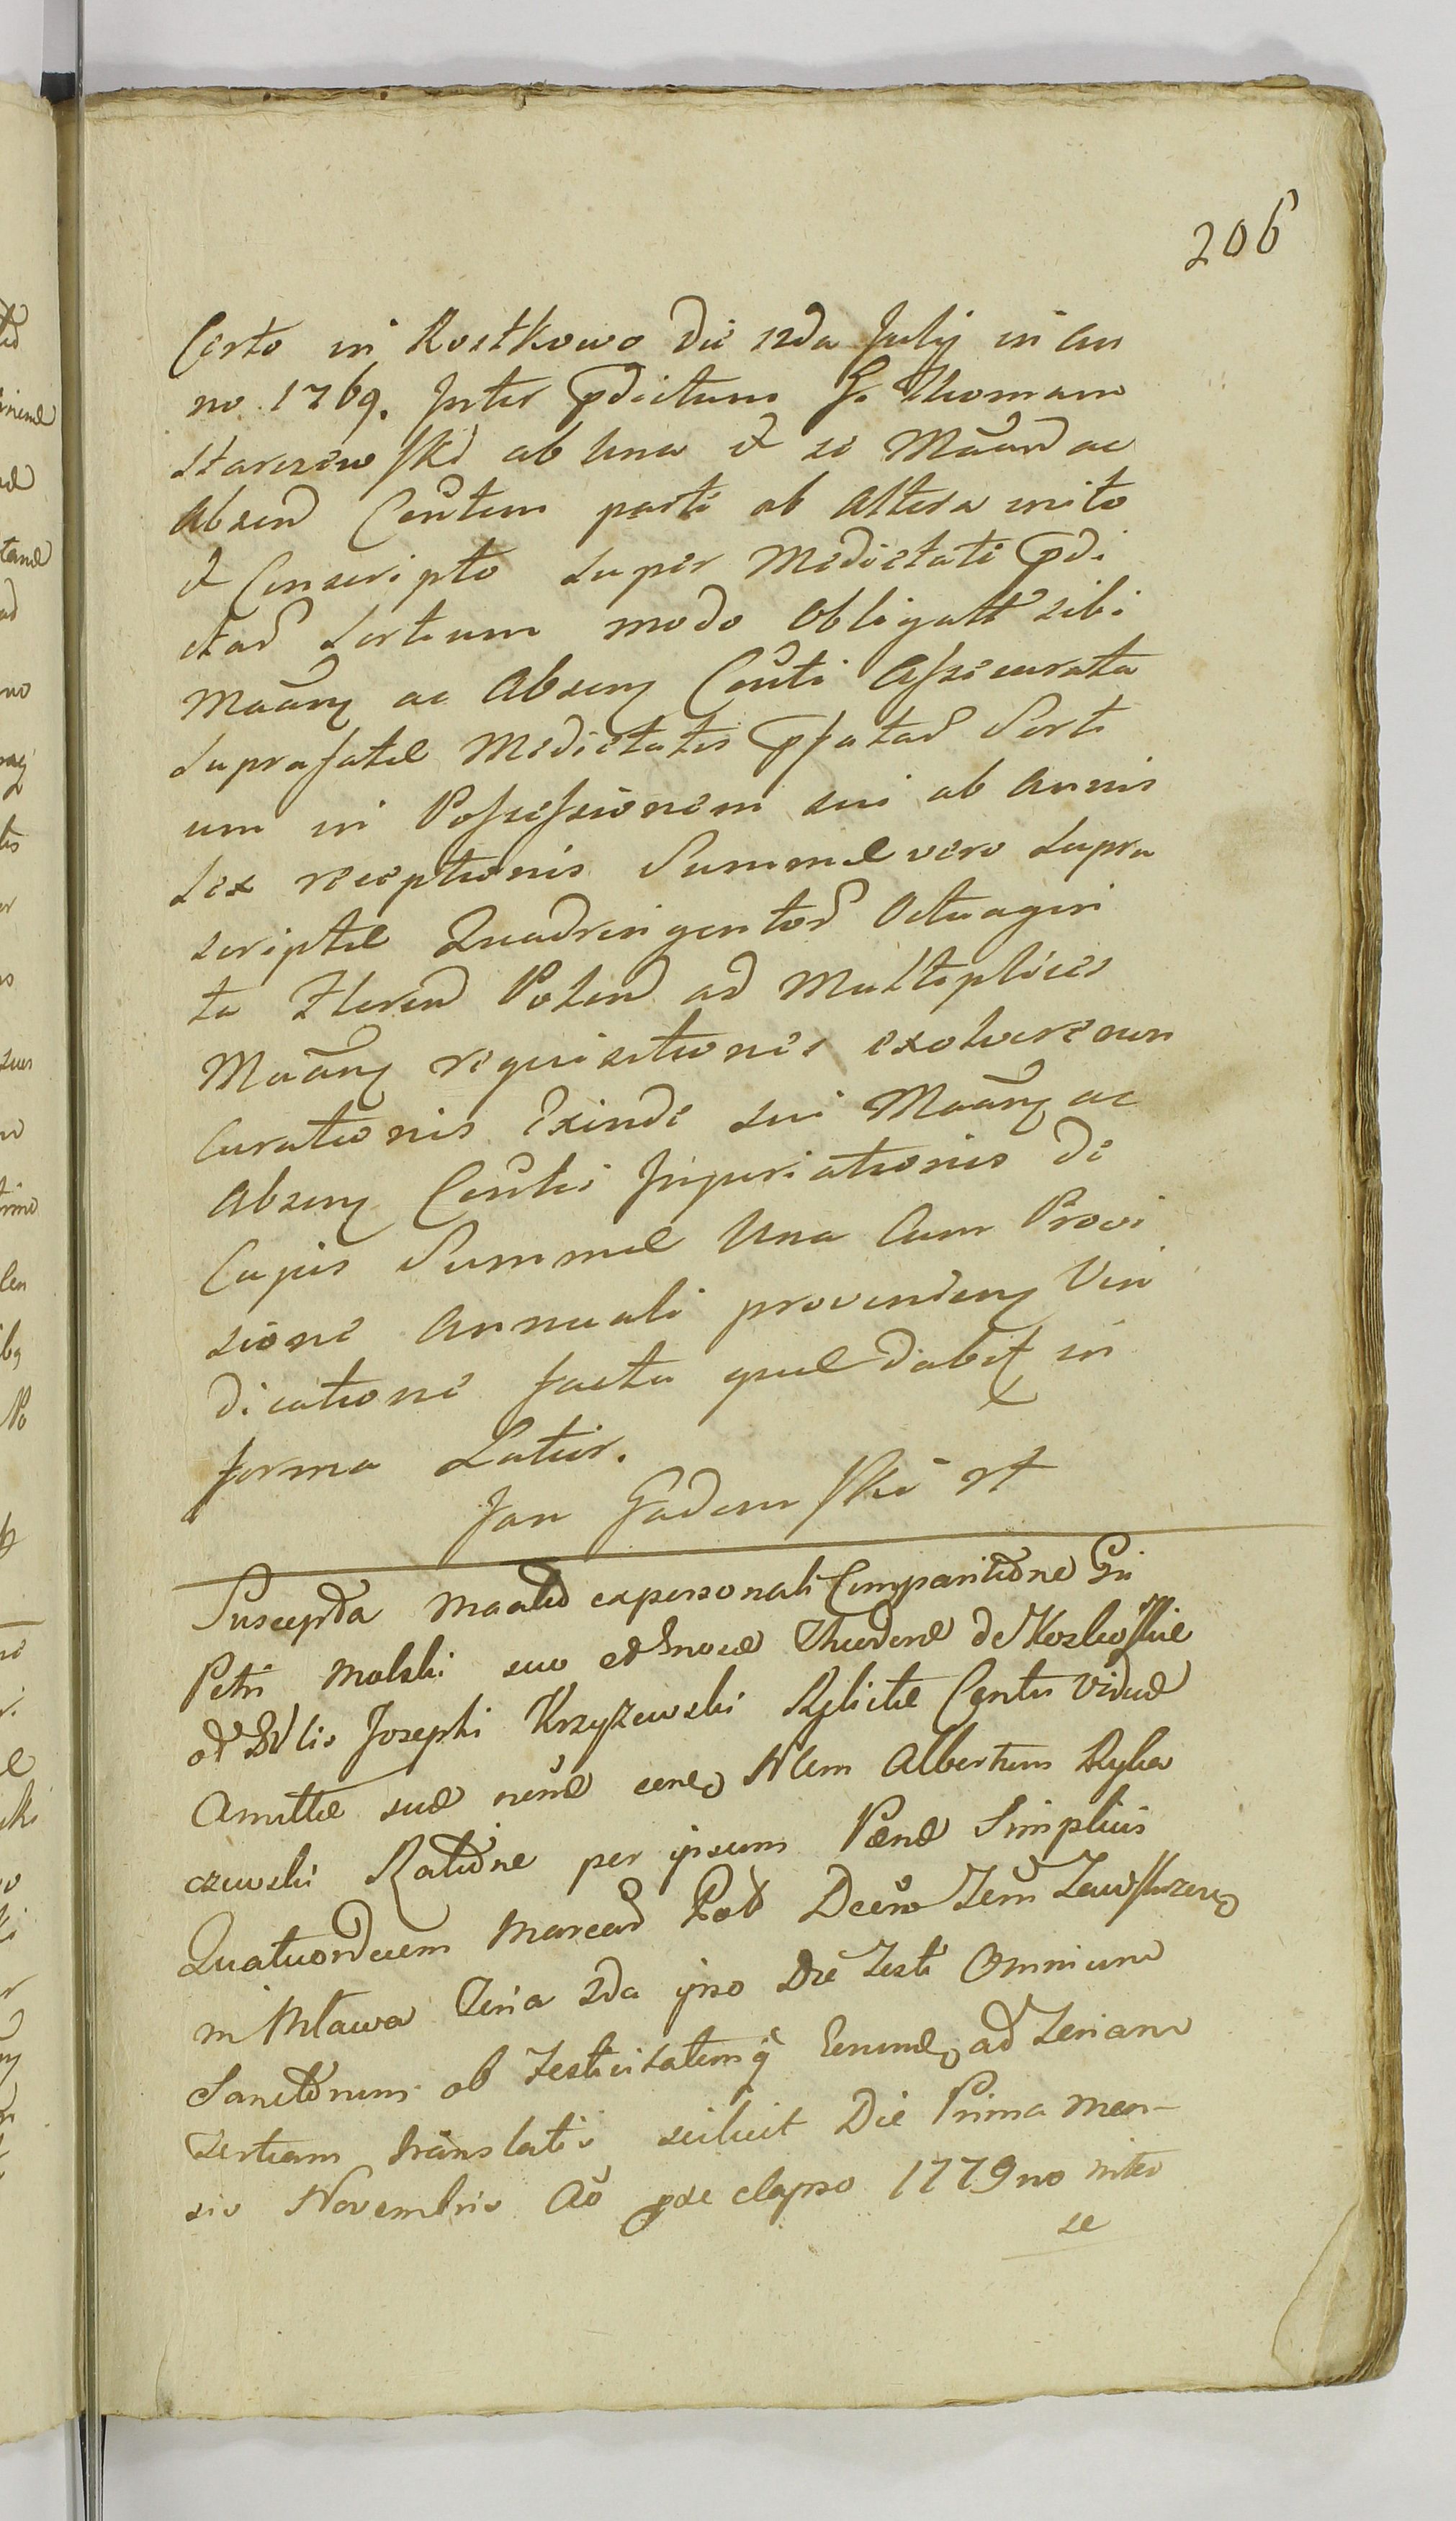 206
Certo in Rostkowo die 12da Julij in an
no 1769. Inter pdictum G. Thomam
Starczewski ab una et se Maand ac
Absend Centem parte ab altera inito
et Conscripto super Medietate pdi
ctar Sortium modo Obligatt sibi
Maang ac Absenz Centi Assecurata
suprafatae Medietatis pfatar Sorti
um in Possessionem sui ab annis
sex receptionis Summae vero supra
scriptae Quadringentor Octuagin
ta Floren Polon ad Multiplices
Maang requisitiones exolvere non
Curationis Exinde sui Maang ac
Absenz Centis Injuriationis de
Cujus Summae Una Cum Provi
sione Annuali provenienz Vin
dicatione facta quae dabit in
forma Latior.
Jan Gadomski
Suscepta Maatio ex personali Comparitione Gsi
Petri Malski suo et Gnosae Theclae de Kozlowskie
Josephi Krzyzewski Relictae Centis Viduae
Amittae suae nene Nlem Albertum Ryba
czewski Ratione per ipsum Paenae Simplicis
Quatuordecim Marcar Pold Zawskrzen
in Mlawa Feria 2da ipso Die Festi Omnium
Sanctorum ob Festivitatemq ad Feriam
tertiam translatis scilicet Die Prima Men-
sis Novembris Ao elapso 1779no inter
se